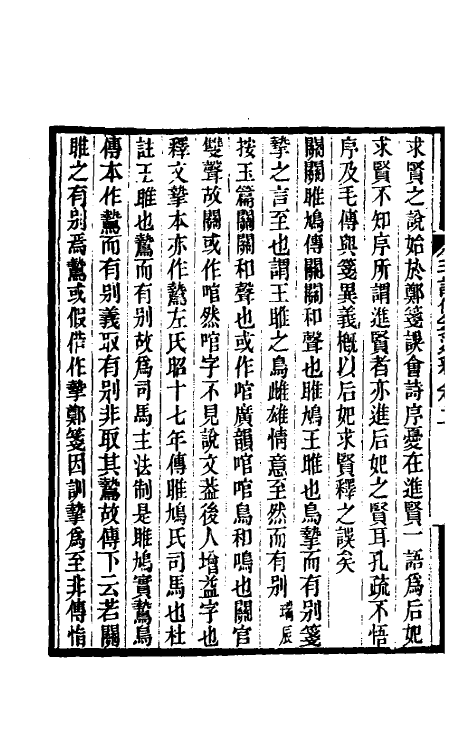 求賢之說始於鄭箋誤會詩序憂在進賢一語爲后妃
求賢不知序所謂進賢者亦進后妃之賢耳孔疏不悟
序及毛傳與箋異義槪以后妃求賢釋之誤矣
關關雎鳩傳關關和聲也雎鳩王雎也鳥摯而有别箋
摯之言至也謂王雎之鳥雌雄情意至然而有别 瑞辰
按玉篇關關和聲也或作喧廣韻喧喧鳥和鳴也關官
雙聲故關或作喧然喧字不見說文葢後人增益字也
釋文摯本亦作鷙左氏昭十七年傳雎鳩氏司馬也杜
註王雎也鷙而有别故爲司馬主法制是雎鳩實鷙鳥
傳本作鷙而有别義取有别非取其鷙故傳下云若關
雎之有别焉鷙或假借作摯鄭箋因訓摯爲至非傳恉